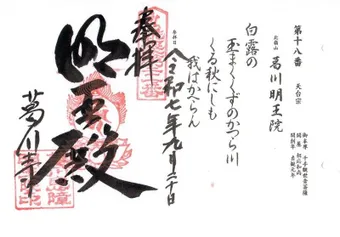 第十八番 天台宗
北嶺山 葛川明王院
御本尊 千手観世音菩薩
開基 相応和尚
開創年 貞観元年
白露の
玉まくくずのかつら川
くる秋にしも
我はかへらん
参拝日 令和七年九月二十日
奉拝
明王殿
葛川寺